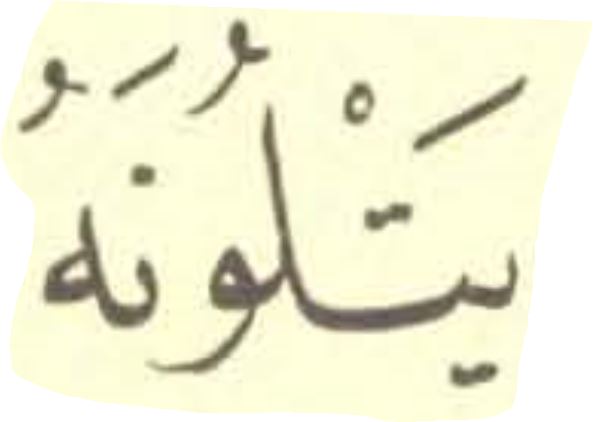 يَتْلُونَهُ